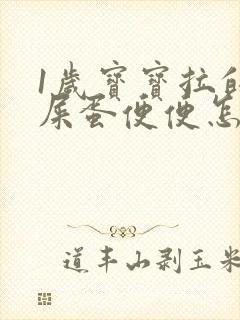 1歲寶寶拉的
屎蛋便便怎
道丰山剥玉米